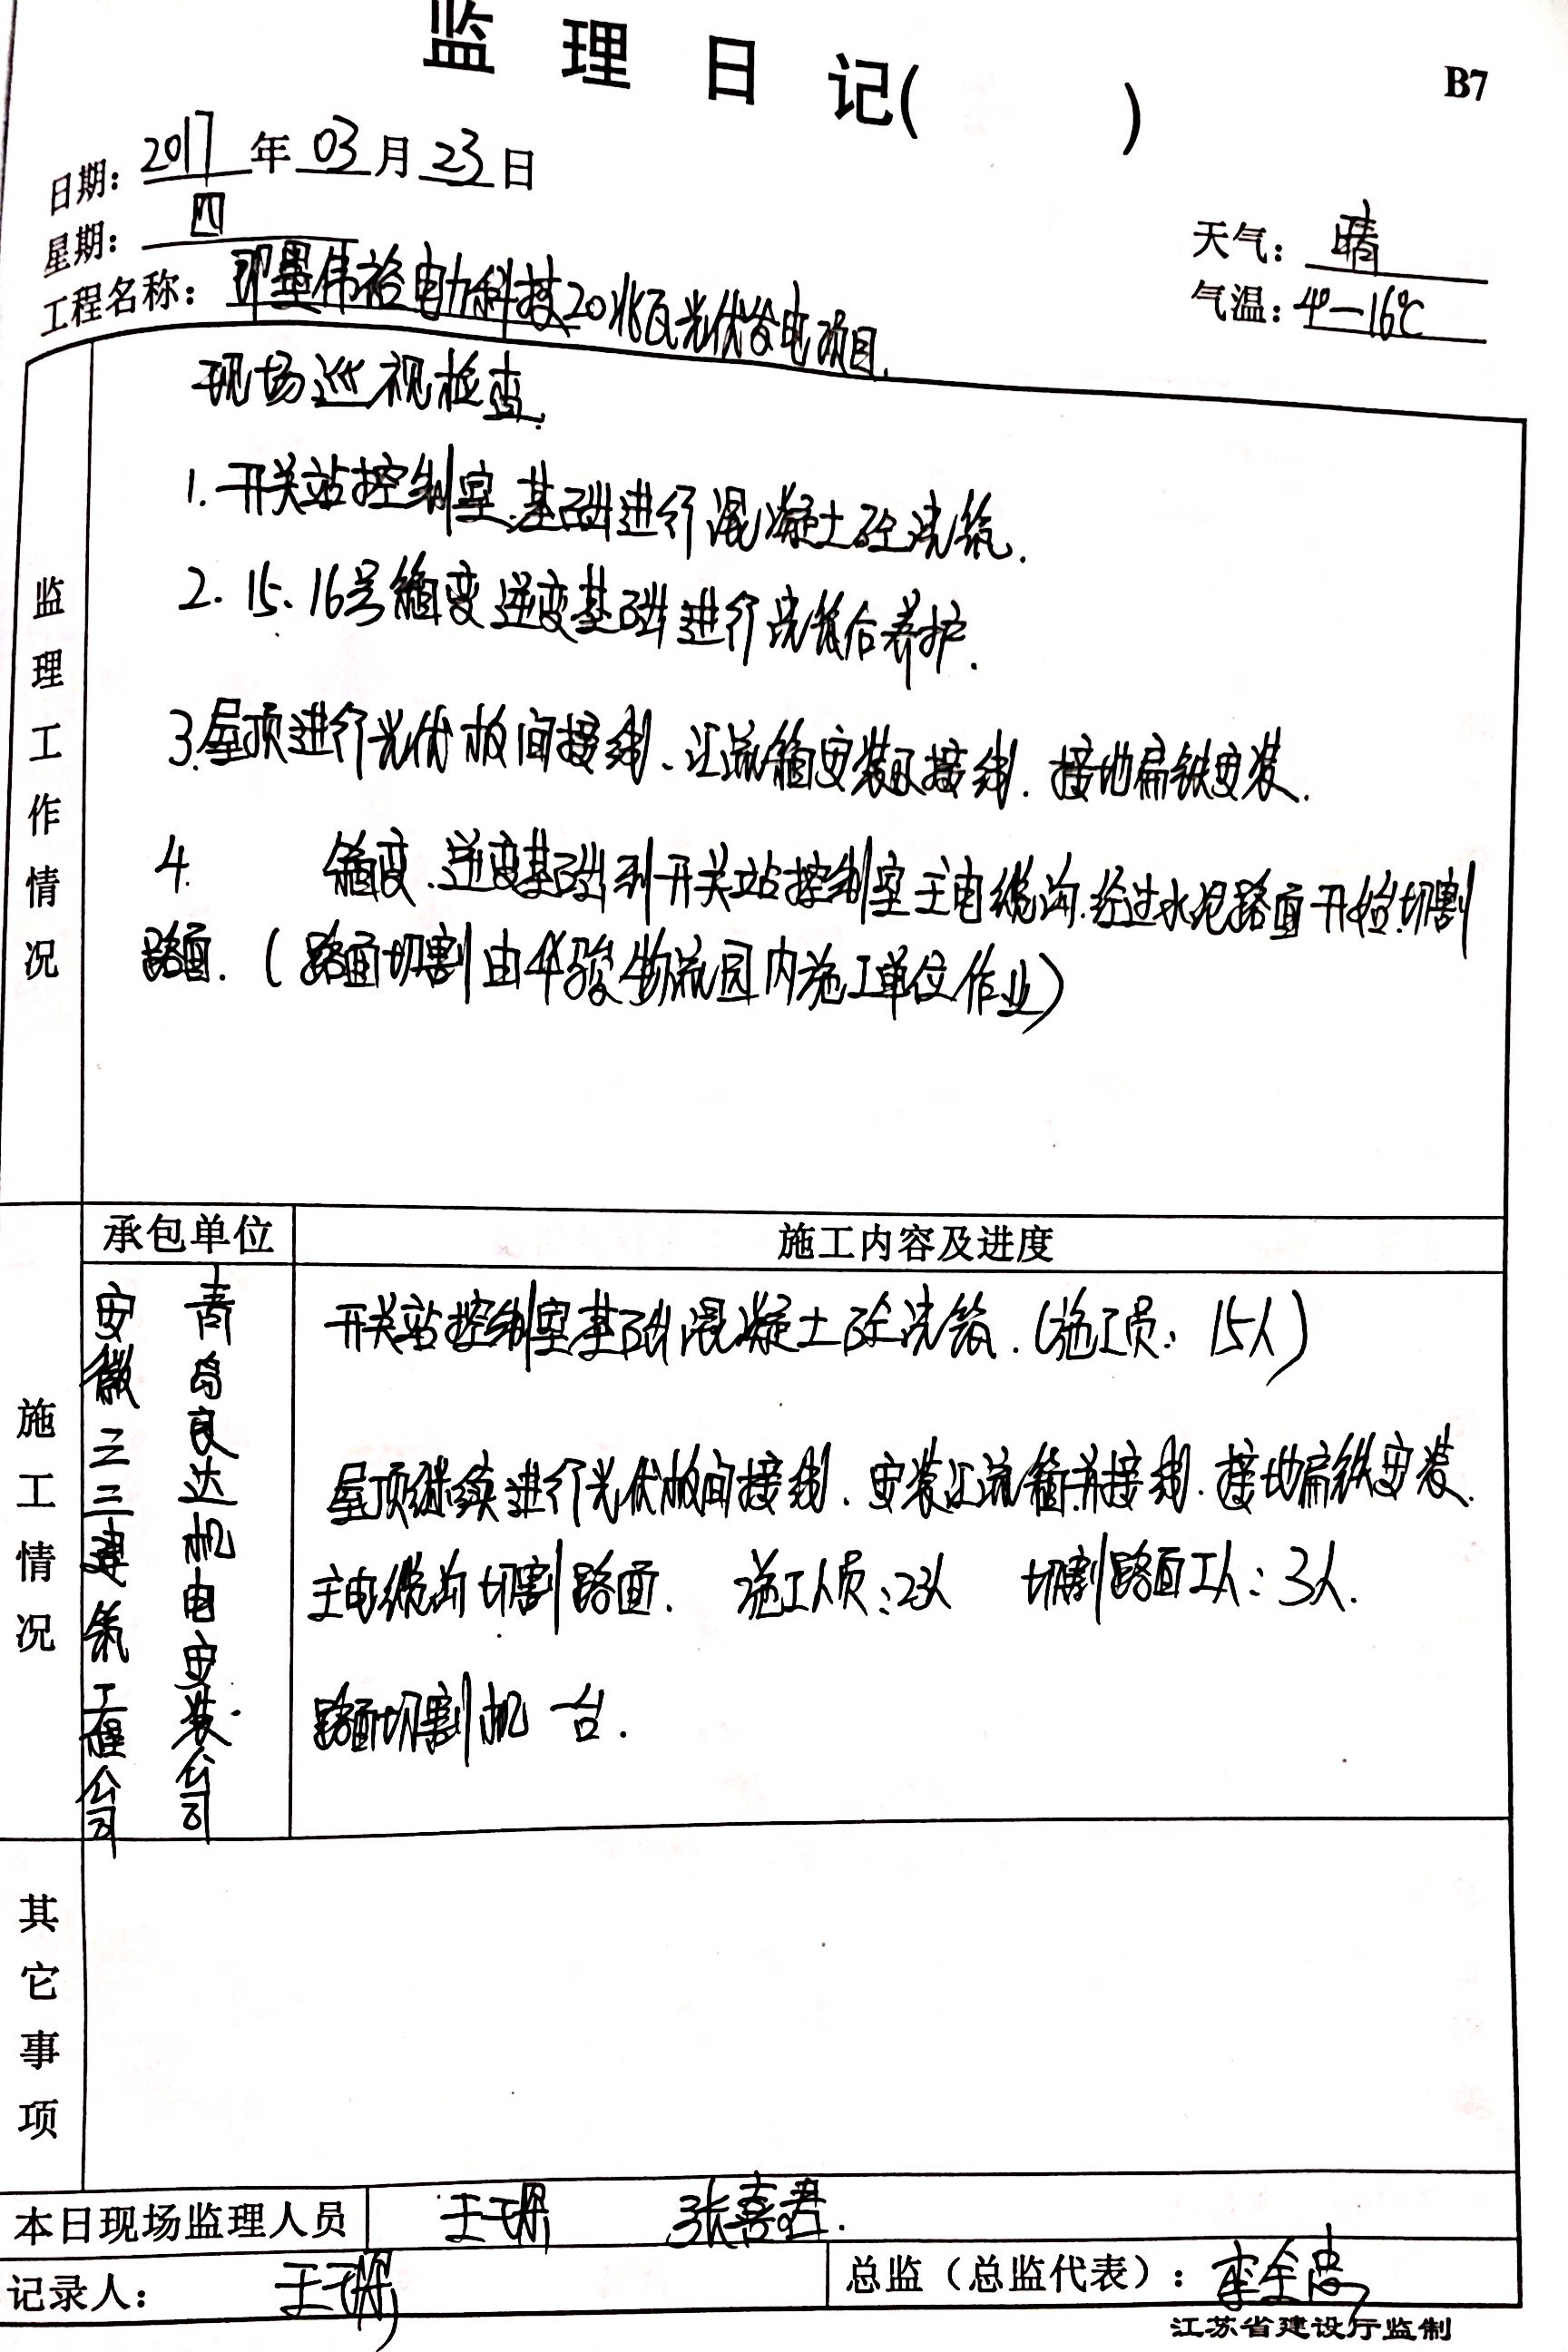 监理日记(        )
B7
日期：2017年03月23日
星期：四
天气：晴
工程名称：即墨伟裕电力科技20兆瓦光伏发电项目.
气温：4°—16℃
监理工作情况
现场巡视检查.
1.开关站控制室.基础进行混凝土砼浇筑.
2.15、16号箱变逆变基础进行浇筑后养护.
3.屋顶进行光伏板间接线、汇流箱安装及接线.接地扁铁安装.
4.箱变、逆变基础到开关站控制室主电缆沟.经过水泥路面开始切割
路面.(路面切割由华骏物流园内施工单位作业)
施工情况
承包单位
施工内容及进度
安徽三三建筑工程公司
青岛良达机电安装公司
开关站控制室基础混凝土砼浇筑.(施工员：15人)
屋顶继续进行光伏板间接线、安装汇流箱并接线.接地扁铁安装.
主电缆沟切割路面. 施工人员：23人 切割路面工人：3人.
路面切割机一台.
其它事项
本日现场监理人员
张喜君.
记录人：
总监（总监代表）：李全忠
江苏省建设厅监制